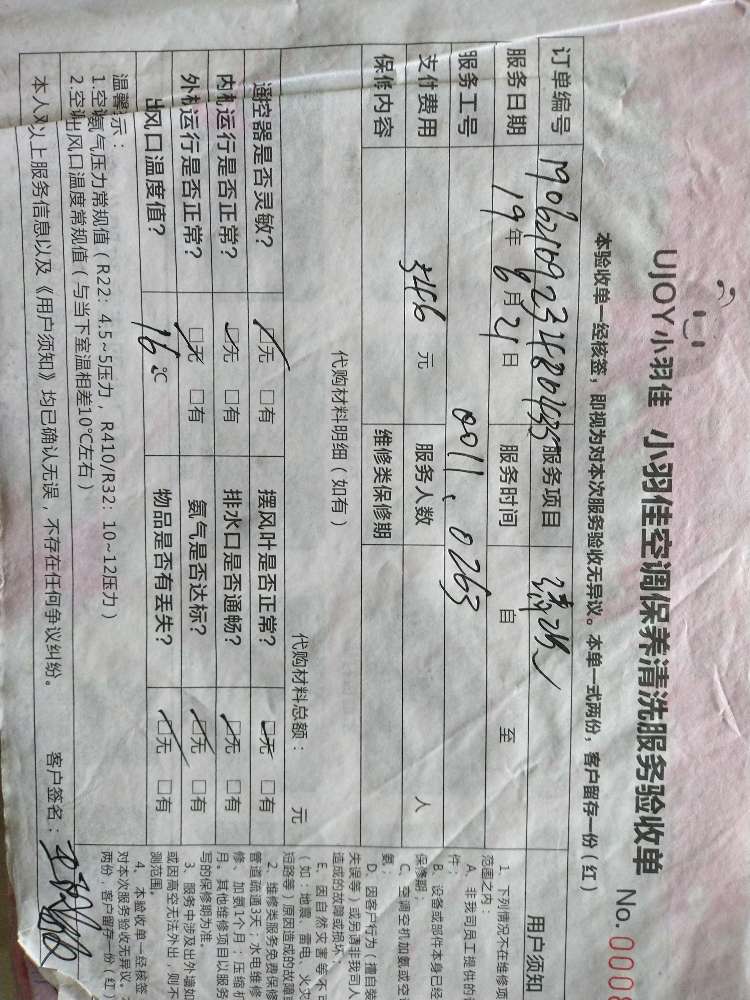 UJOY小羽佳 小羽佳空调保养清洗服务验收单 No.000
本验收单一经核签，即视为对本次服务验收无异议。本单一式两份，客户留存一份（红）
订单编号 服务项目 清洗
服务日期 19年6月21日 服务时间 自 至
服务工号 0011、0263
支付费用 元 服务人数 人
保修内容 维修类保修期
代购材料明细（如有） 代购材料总额： 元
遥控器是否灵敏？ □无 □有 摆风叶是否正常？ □无 □有
内机运行是否正常？ □无 □有 排水口是否通畅？ □无 □有
外机运行是否正常？ □无 □有 氨气是否达标？ □无 □有
出风口温度值？ 16℃ 物品是否有丢失？ □无 □有
温馨 示：
1.空 氨气压力常规值（R22：4.5~5压力，R410/R32：10~12压力）
2.空 出风口温度常规值（与当下室温相差10℃左右）
本人对以上服务信息以及《用户须知》均已确认无误，不存在任何争议纠纷。 客户签名：
用户须知
1、下列情况不在维修项
范围之内：
A、非我司员工提供的
件；
B、设备或部件本身已经
保修期；
C、空调空机加氨或空
氨；
D、因客户行为（擅自装
失误等）或另请非我司人
造成的故障或损坏；
E、因自然灾害等不可
（如：地震、雷电、火灾
短路等）原因造成的故障
2、维修类服务免费保修
管道疏通3天；水电维修
修、加氨1个月；压缩机
月。其他维修项目以服务
写的保修期为准。
3、服务中涉及出外墙如
或因高空无法外出，则不
测范围。
4、本验收单一经核签
对本次服务验收无异议。
两份，客户留存一份（红）